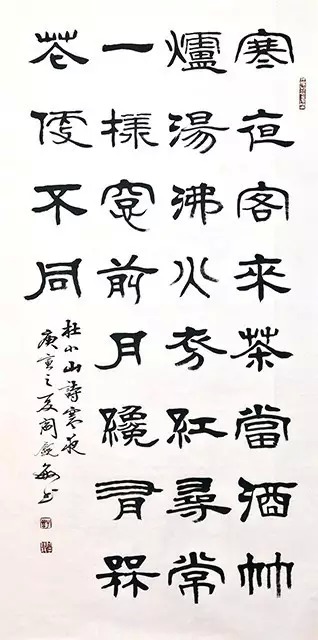 寒夜客來茶當酒竹
爐湯沸火初紅尋常
一樣窗前月纔有槑
花便不同
杜小山詩寒夜
庚寅之夏